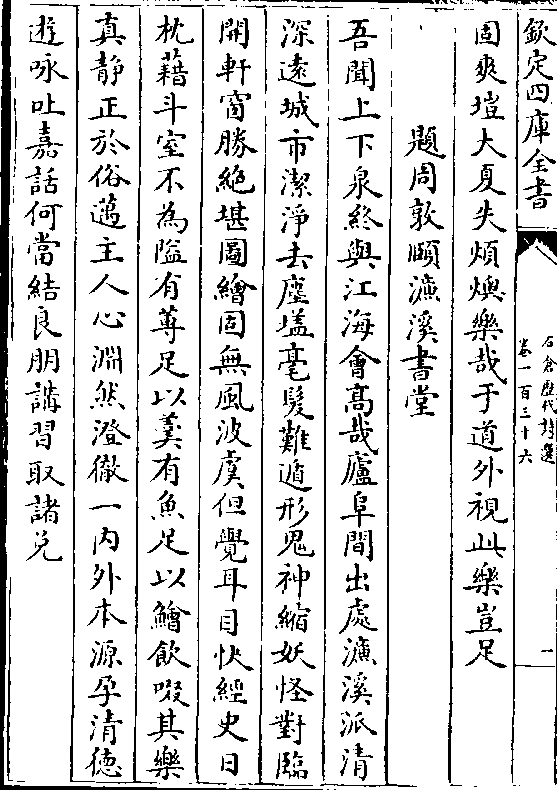 欽定四庫全書
石倉歴代詩選
卷一百三十六
一
固爽塏大夏失煩燠樂哉于道外視此樂豈足
題周敦頤濂溪書堂
吾聞上下泉終與江海會髙哉廬阜間出處濂溪派清
深遠城市潔淨去塵壒毫髮難遁形鬼神縮妖怪對臨
開軒窗勝絶堪圖繪固無風波虞但覺耳目快經史日
枕藉斗室不為隘有蓴足以羹有魚足以鱠飲啜其樂
真静正於俗邁主人心淵然澄徹一内外本源孕清徳
遊咏吐嘉話何當結良朋講習取諸兑